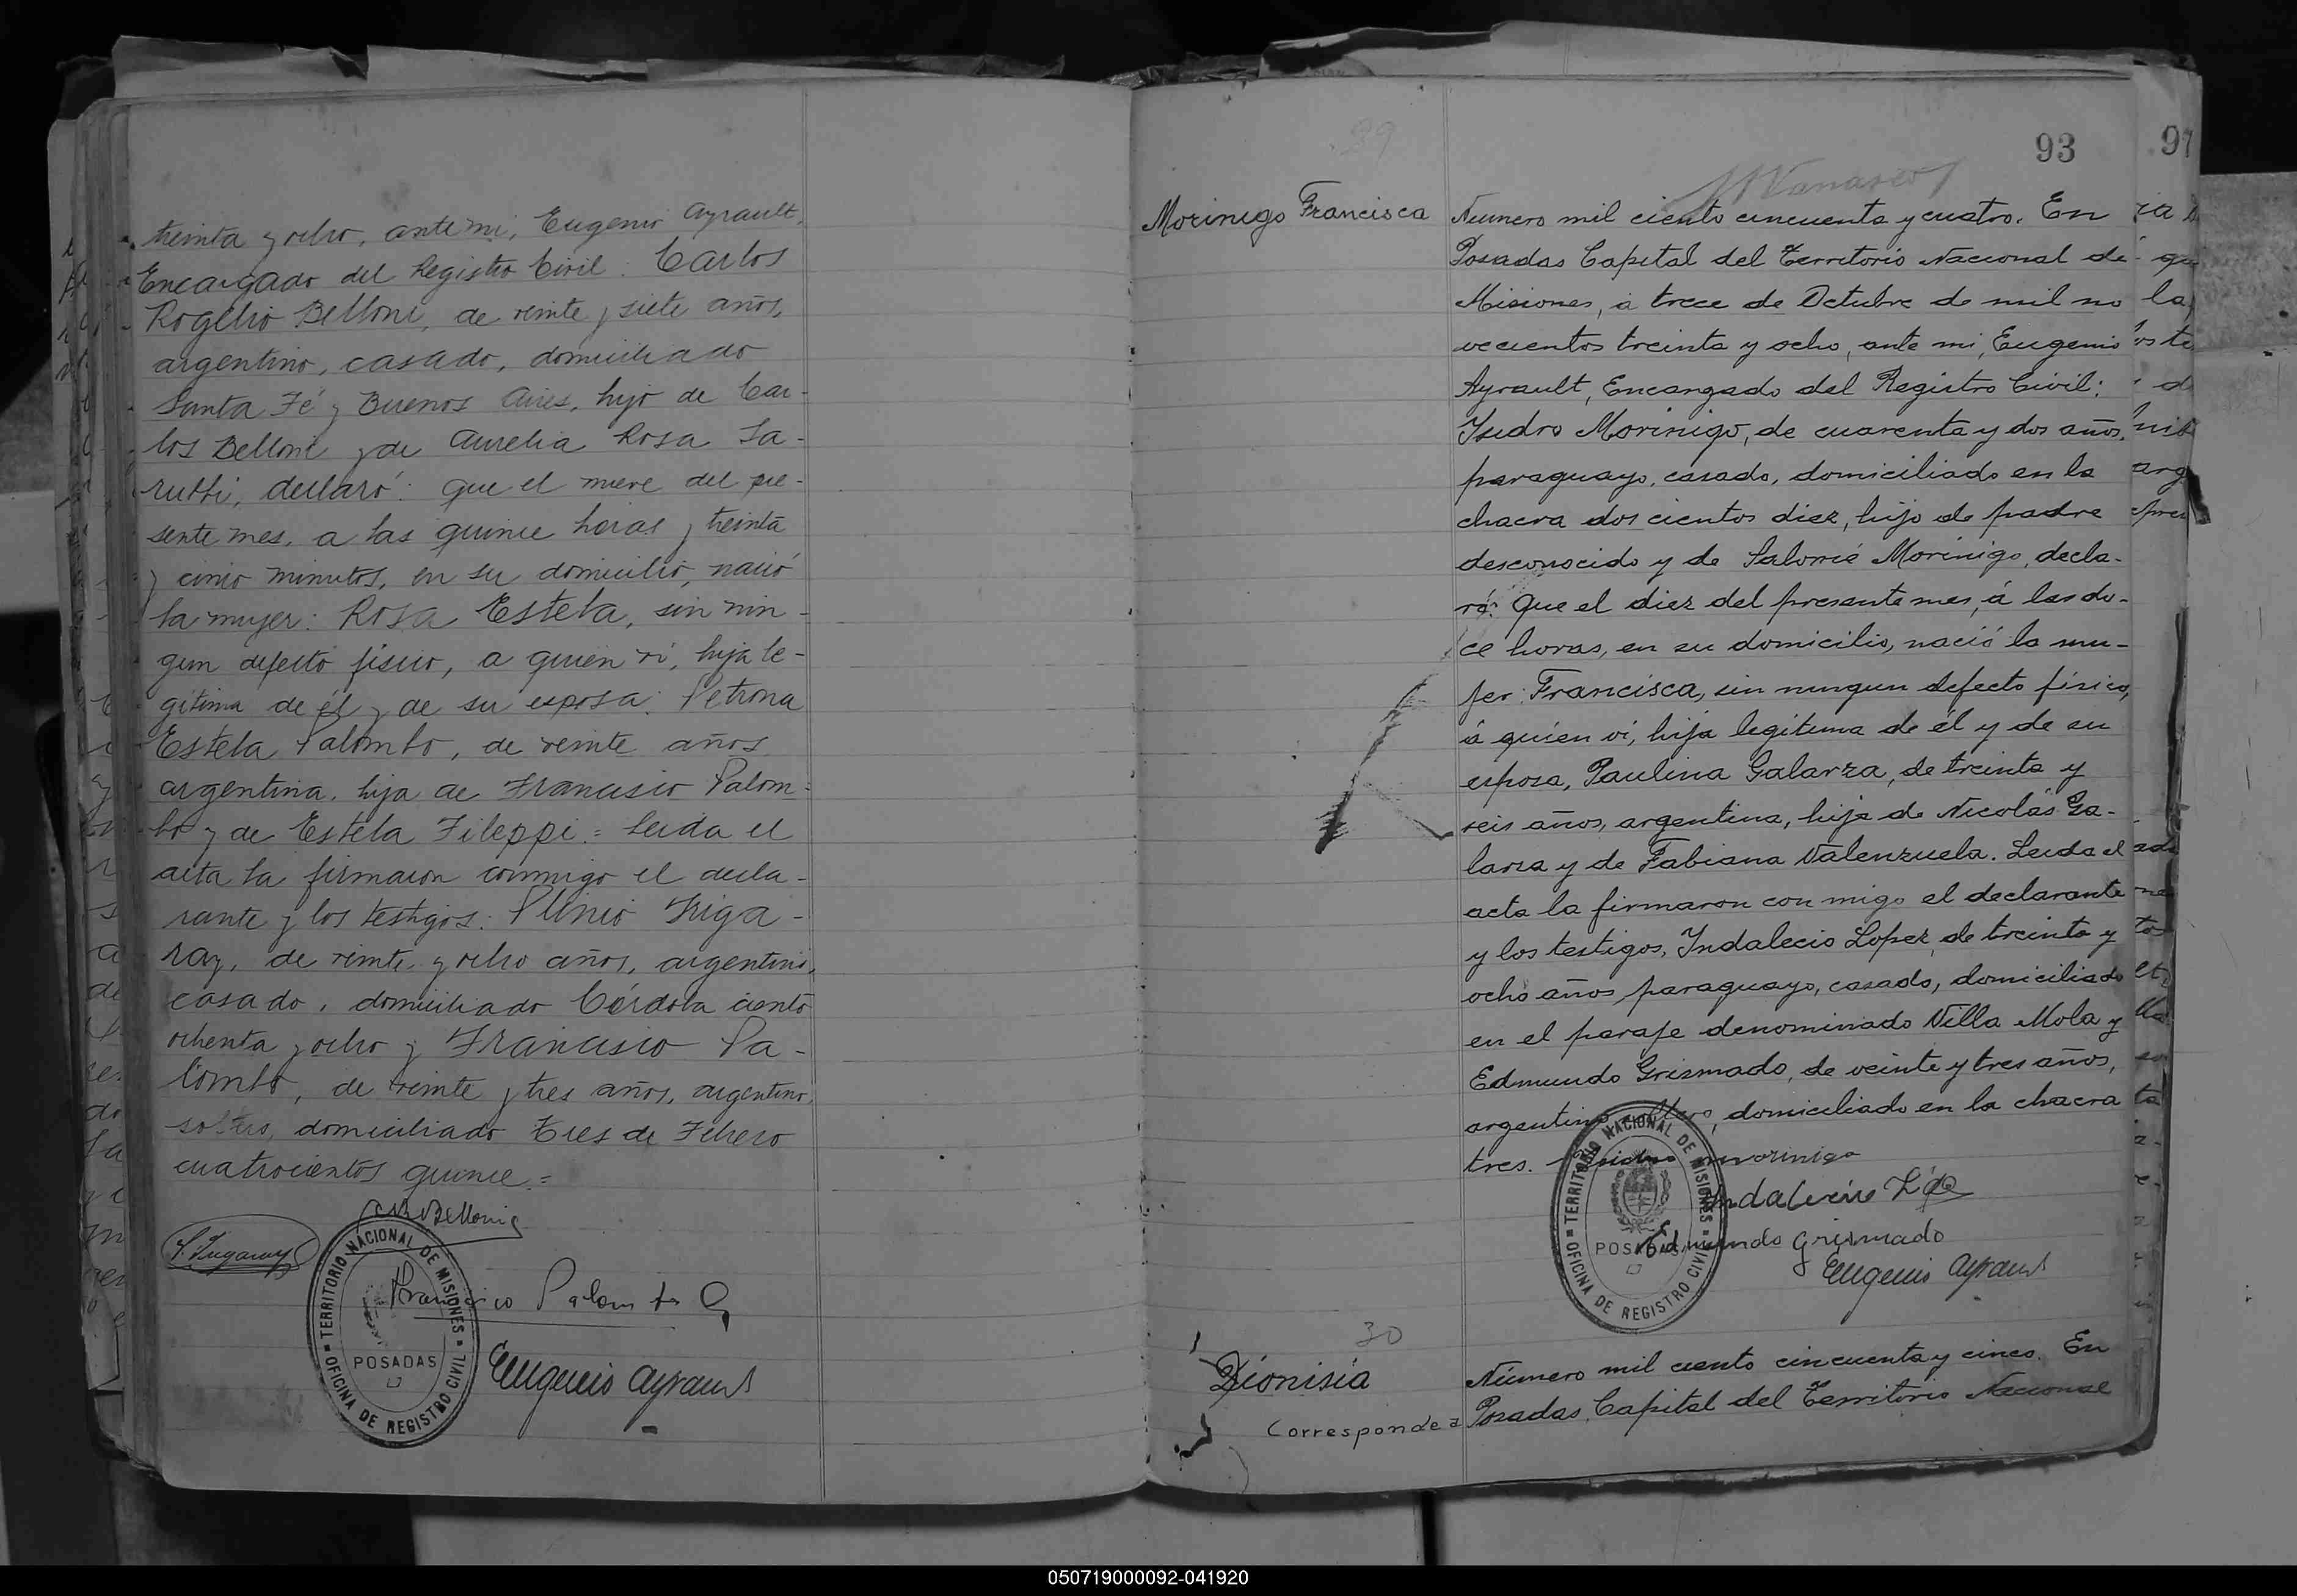 treinta y ocho, ante mi, Eugenio Ayrault,
Encargado del Registro Civil: Carlos
Rogelio Belloni, de veinte y siete años,
argentino, casado, domiciliado
Santa Fé y Buenos Aires, hijo de Car-
los Belloni y de Aurelia Rosa
declaró: que el nueve del pre-
sente mes, a las quince horas y treinta
y cinco minutos, en su domicilio, nació
la mujer: Rosa Estela, sin nin-
gun defecto físico, a quien ví, hija le-
gítima de él y de su esposa: Petrona
Estela Palombo, de veinte años
argentina, hija de Francisco Palom-
bo y de Estela Fileppi = Leída el
acta la firmaron conmigo el decla-
rante y los testigos: Plinio
de veinte y ocho años, argentino,
casado, domiciliado Córdoba ciento
ochenta y ocho y Francisco Pa-
lombo, de veinte y tres años, argentino,
soltero, domiciliado Tres de Febrero
cuatrocientos quince =
Francisco Palombo
Eugenio Ayrault
TERRITORIO NACIONAL DE MISIONES
POSADAS
OFICINA DE REGISTRO CIVIL
93
Morinigo Francisca
Numero mil ciento cincuenta y cuatro. En
Posadas Capital del Territorio Nacional de
Misiones, á trece de Octubre de mil no
vecientos treinta y ocho, ante mi, Eugenio
Ayrault, Encargado del Registro Civil:
Ysidro Morinigo, de cuarenta y dos años,
paraguayo, casado, domiciliado en la
chacra doscientos diez, hijo de padre
desconocido y de Salomé Morinigo, decla-
ró: Que el diez del presente mes, á las do-
ce horas, en su domicilio, nació la mu-
jer: Francisca, sin ningun defecto físico,
á quien ví, hija legítima de él y de su
esposa, Paulina Galarza, de treinta y
seis años, argentina, hija de Nicolás Ga-
larza y de Fabiana Valenzuela. Leida el
acta la firmaron con migo el declarante
y los testigos, Indalecio Lopez, de treinta y
ocho años, paraguayo, casado, domiciliado
en el paraje denominado Villa Mola y
Edmundo Grismado, de veinte y tres años,
argentino, soltero, domiciliado en la chacra
tres. Isidro morinigo
Indalecio
Edmundo Grismado
Eugenio Ayrault
TERRITORIO NACIONAL DE MISIONES
POSADAS
OFICINA DE REGISTRO CIVIL
30
Dionisia
Corresponde a
Número mil ciento cincuenta y cinco. En
Posadas, Capital del Territorio Nacional
050719000092-041920